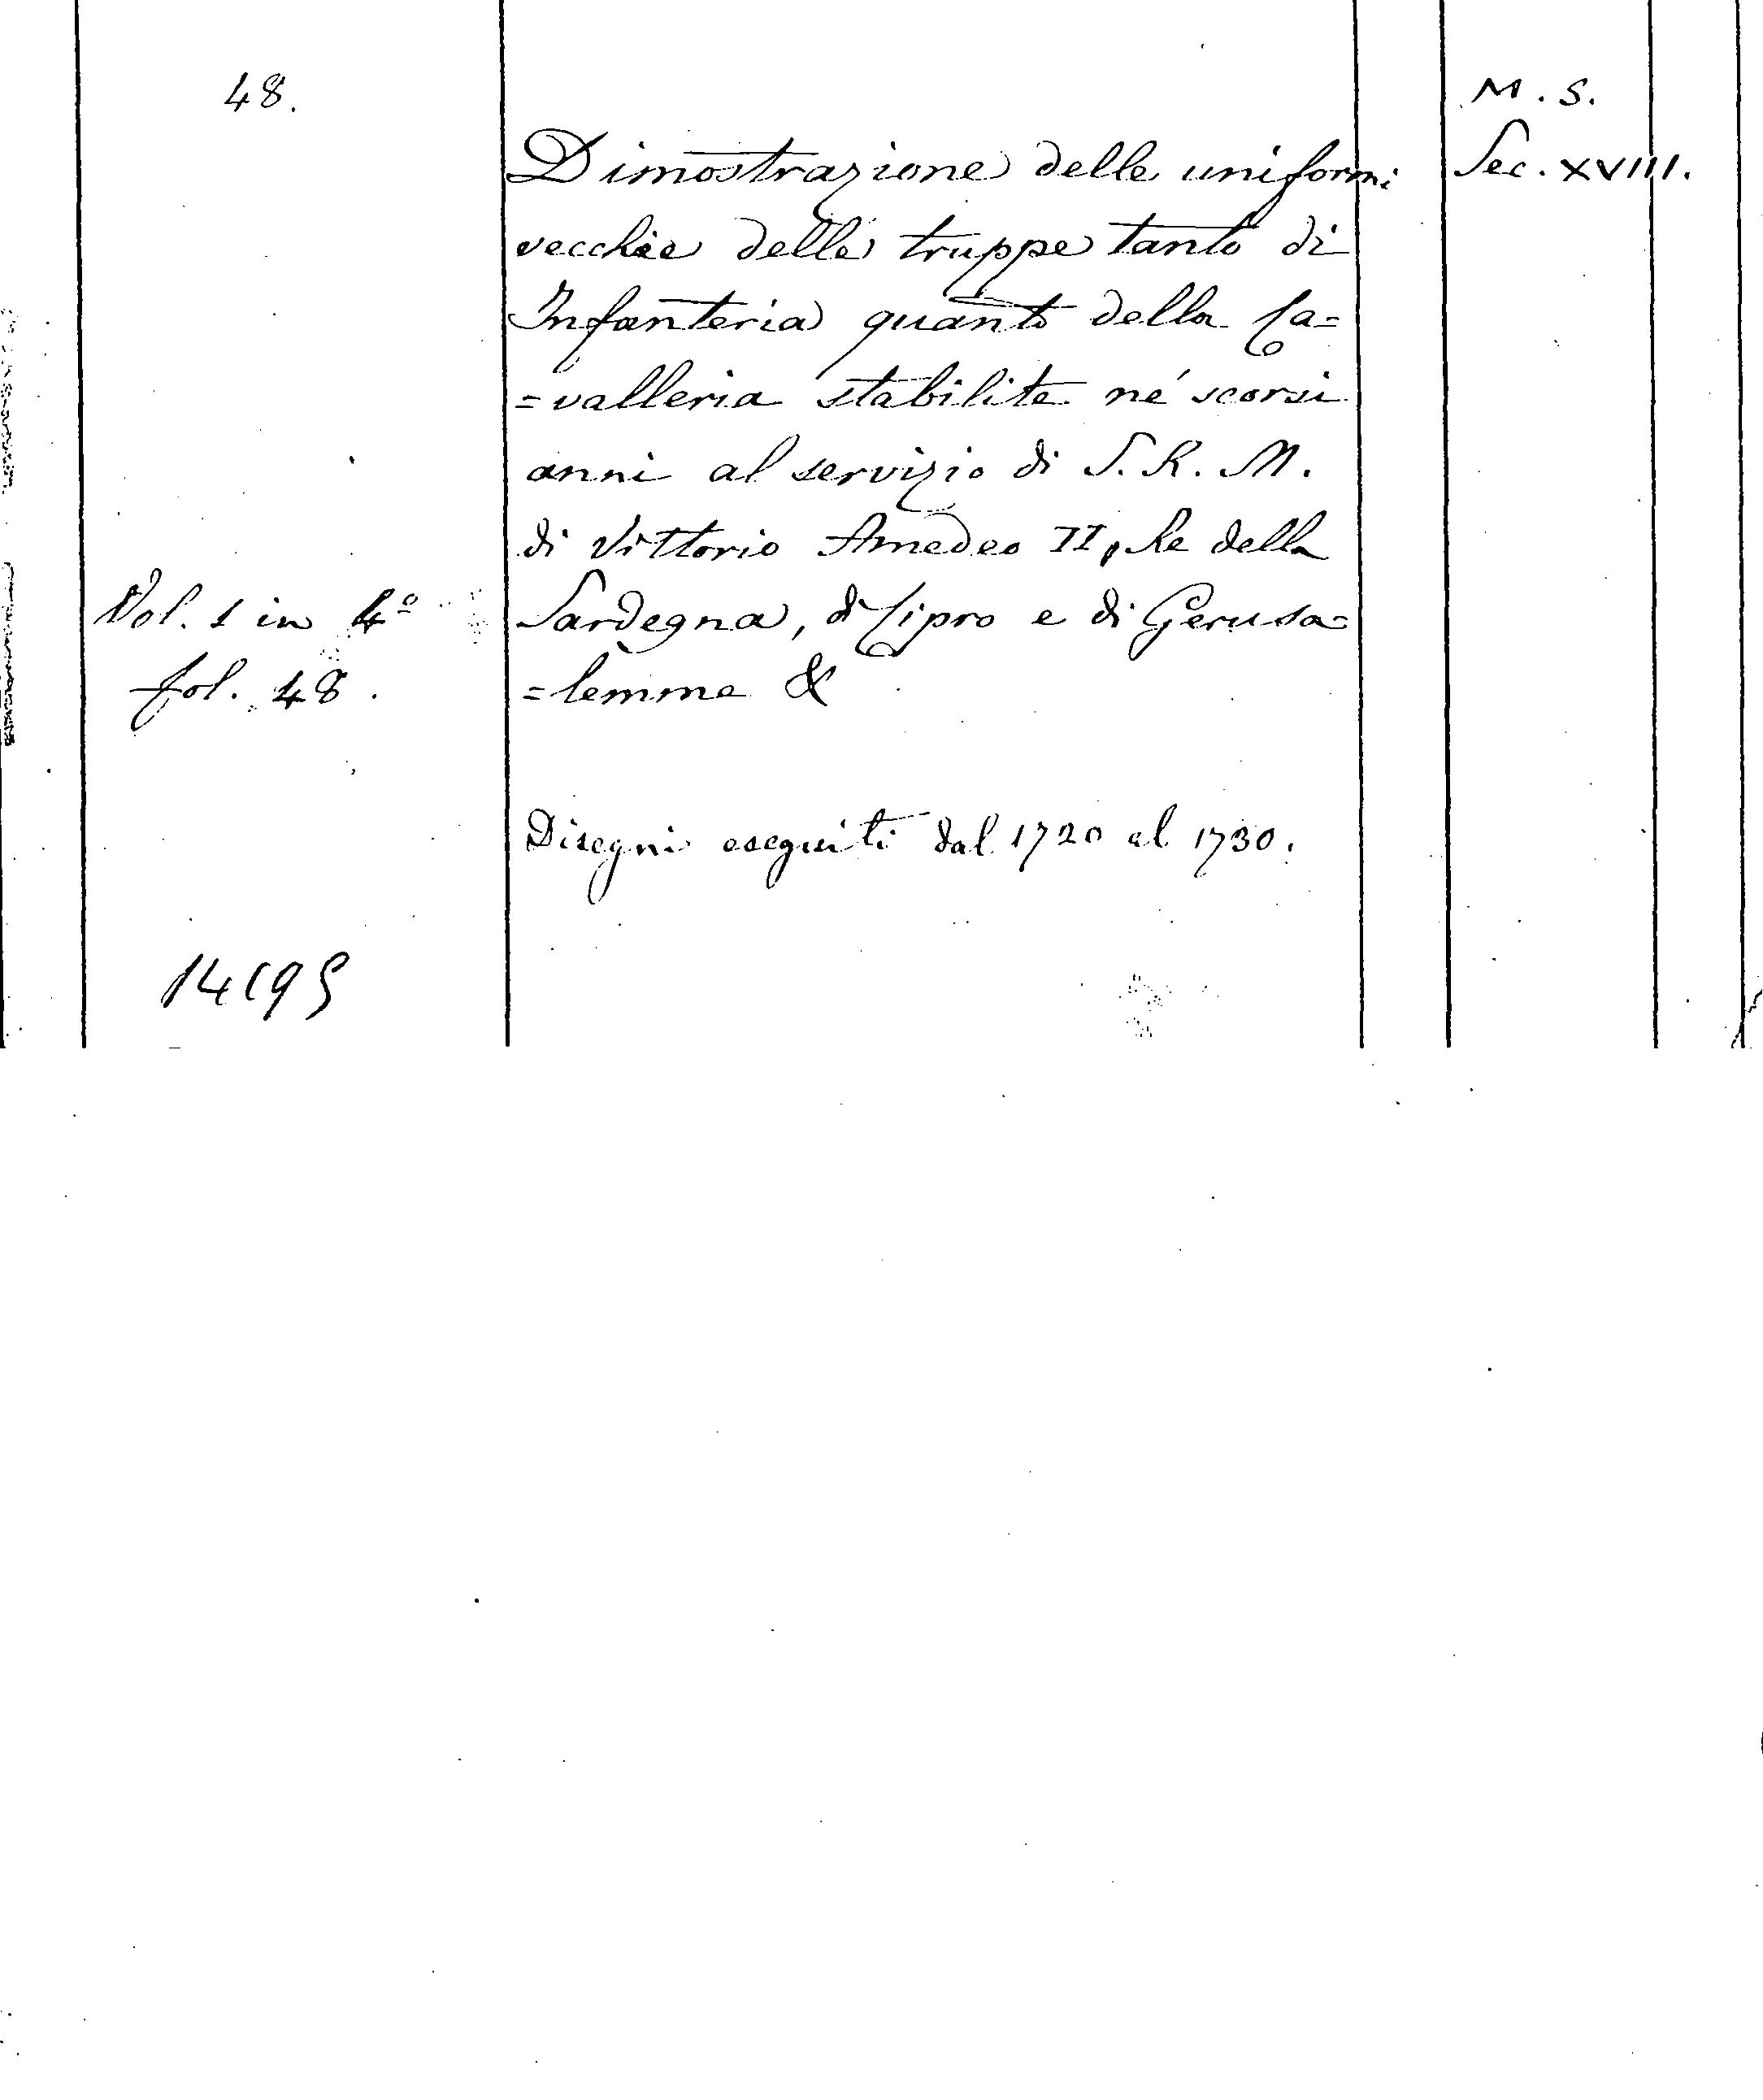 48.
M. S.
Sec. XVIII.
Dimostrazione delle uniformi
vecchie delle truppe tanto di
Infanteria quanto della Ca=
=valleria stabilite né scorsi
anni al servizio di S. R. M.
di Vittorio Amedeo II, Re della
Sardegna, di Cipro e di Gerusa=
=lemme &
Vol. 1 in 4º
fol. 48.
Disegni eseguiti dal 1720 al 1730.
14195